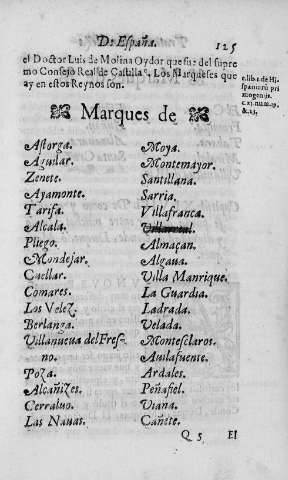 D: España.
125
el Doctor Luis de Molina Oydor que fue del supre
mo Consejo Real de Castilla ᵃ, Los Marqueses que
ay en estos Reynos son.
Marques de
Astorga.
Aguilar.
Zenete.
Ayamonte.
Tarifa.
Alcala.
Pliego.
Mondejar.
Cuellar.
Comares.
Los Velez.
Berlanga.
Villanueua del Fres-
no.
Poza.
Alcañizes.
Cerraluo.
Las Nauas.
Moya.
Montemayor.
Santillana.
Sarria.
Villafranca.
Villarreal.
Almaçan.
Algaua.
Villa Manrique.
La Guardia.
Ladrada.
Velada.
Montesclaros.
Auilafuente.
Ardales.
Peñafiel.
Viana.
Cañete.
a. lib. 1 de Hi
spanorū pri
mogenijs.
c. 11. num. 19.
& 23.
Q 5
El